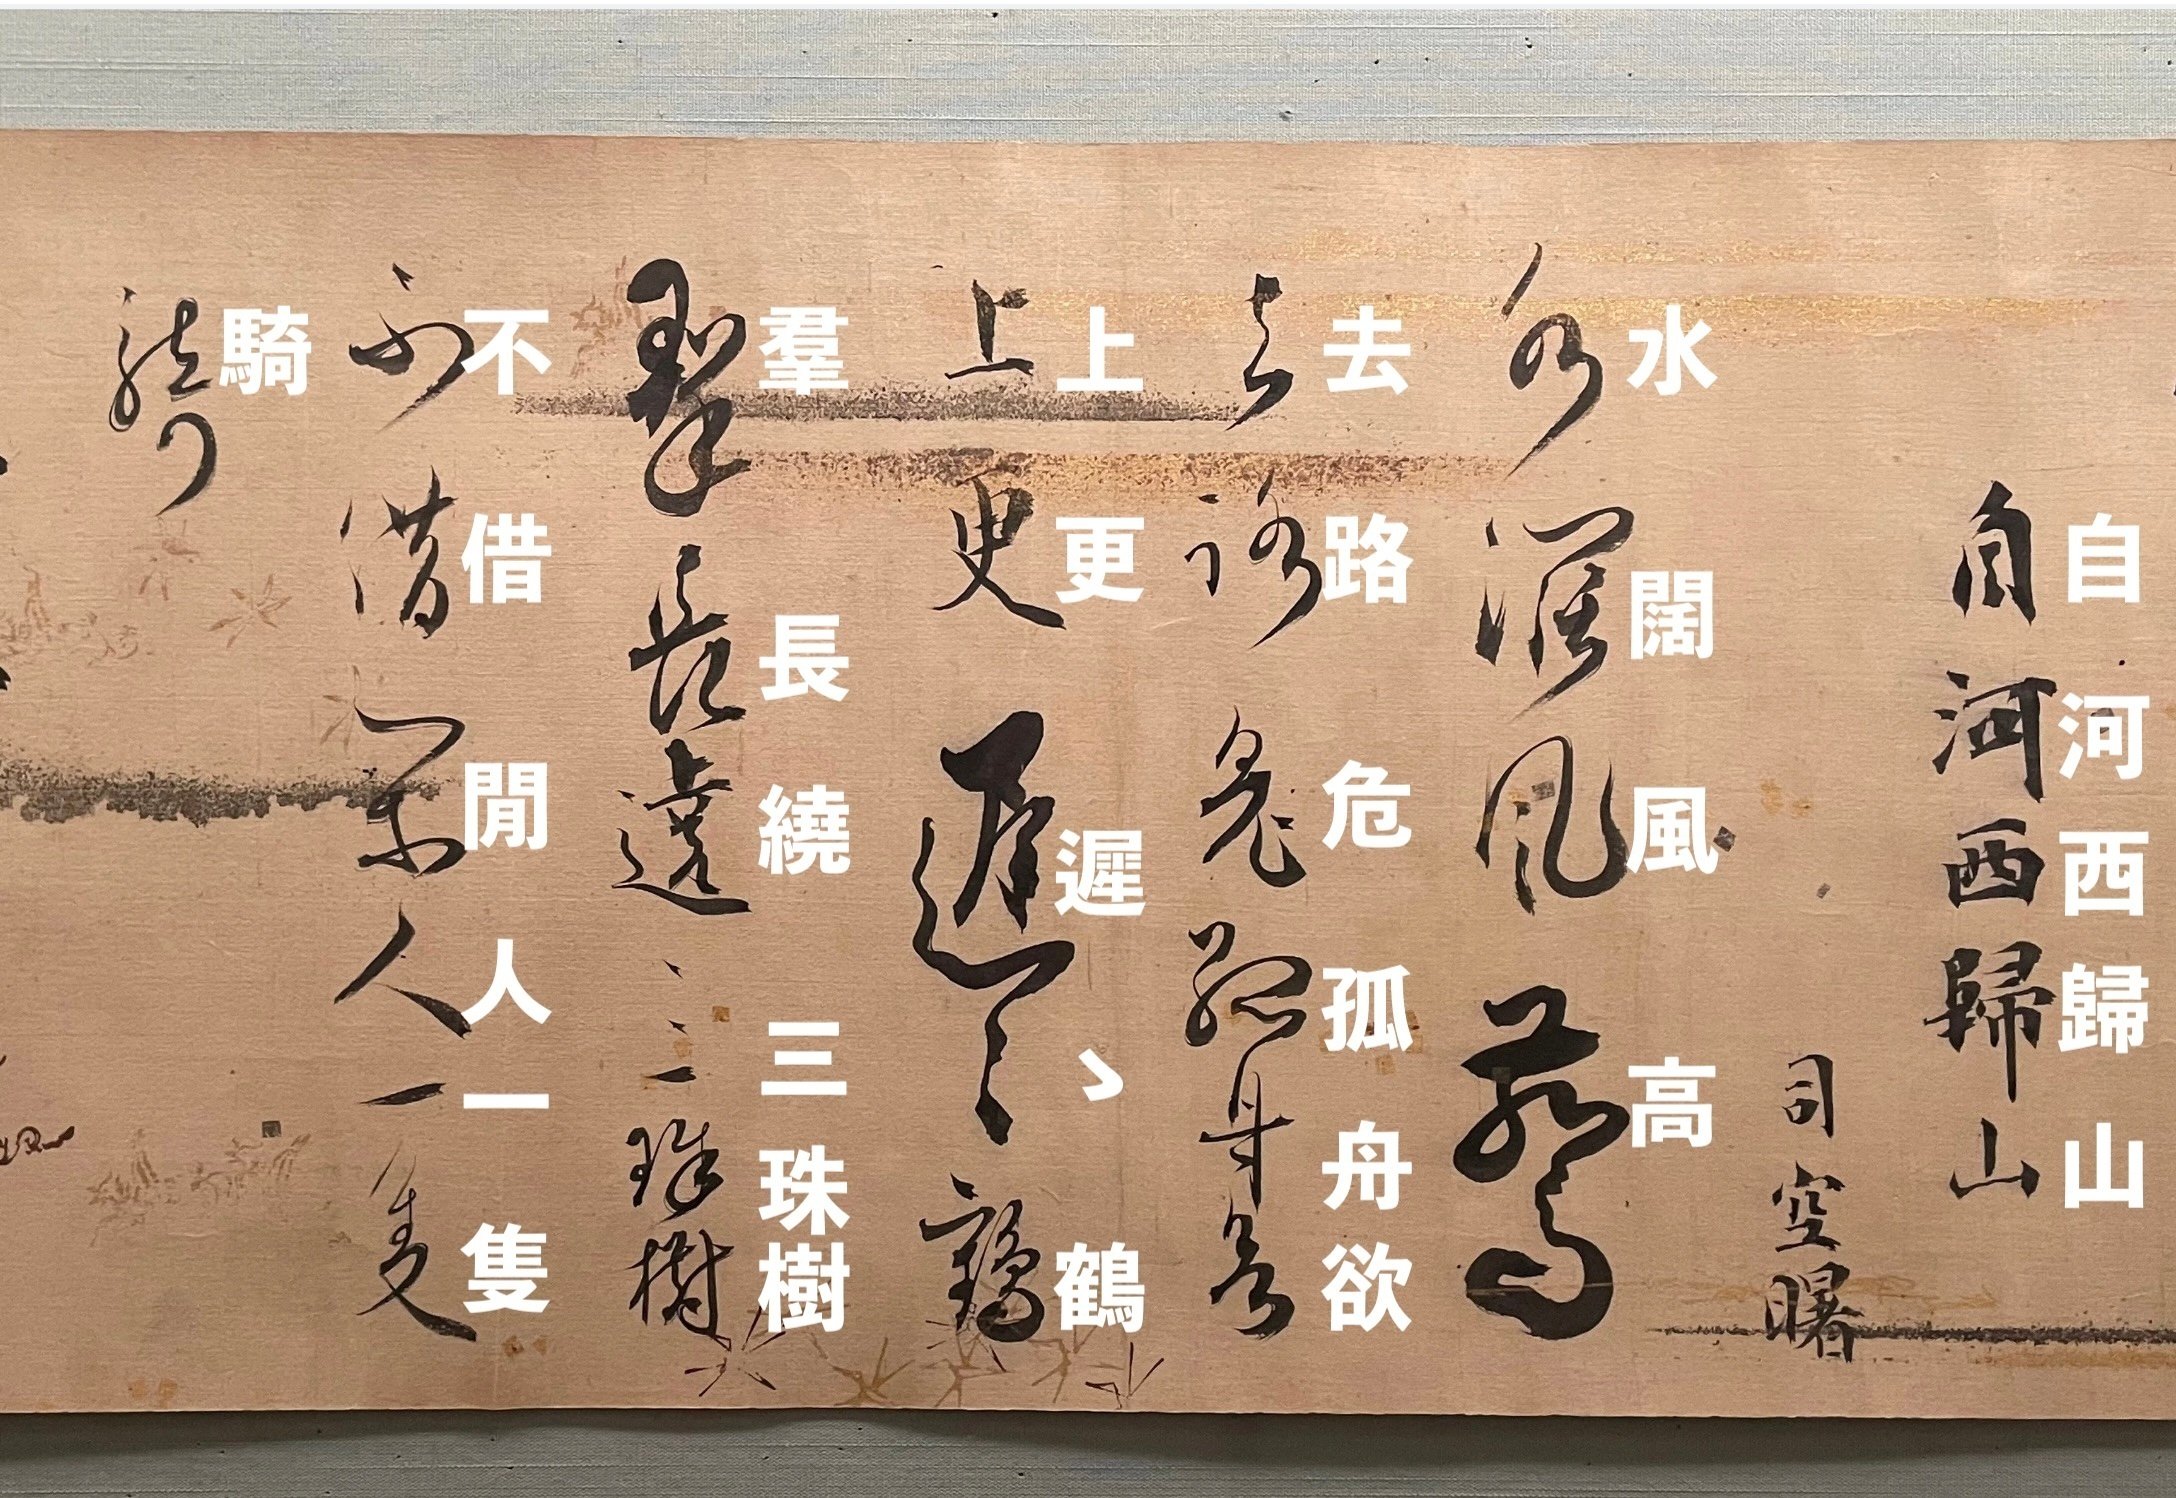 自河西歸山
自河西歸山
司空曙
水闊風高
水闊風驚
去路危孤舟欲
去路危孤舟欲
上更遲ゝ鶴
上更遲ゝ鶴
羣長繞三珠樹
羣長遶三珠樹
不借閒人一隻
不借閒人一隻
騎
騎